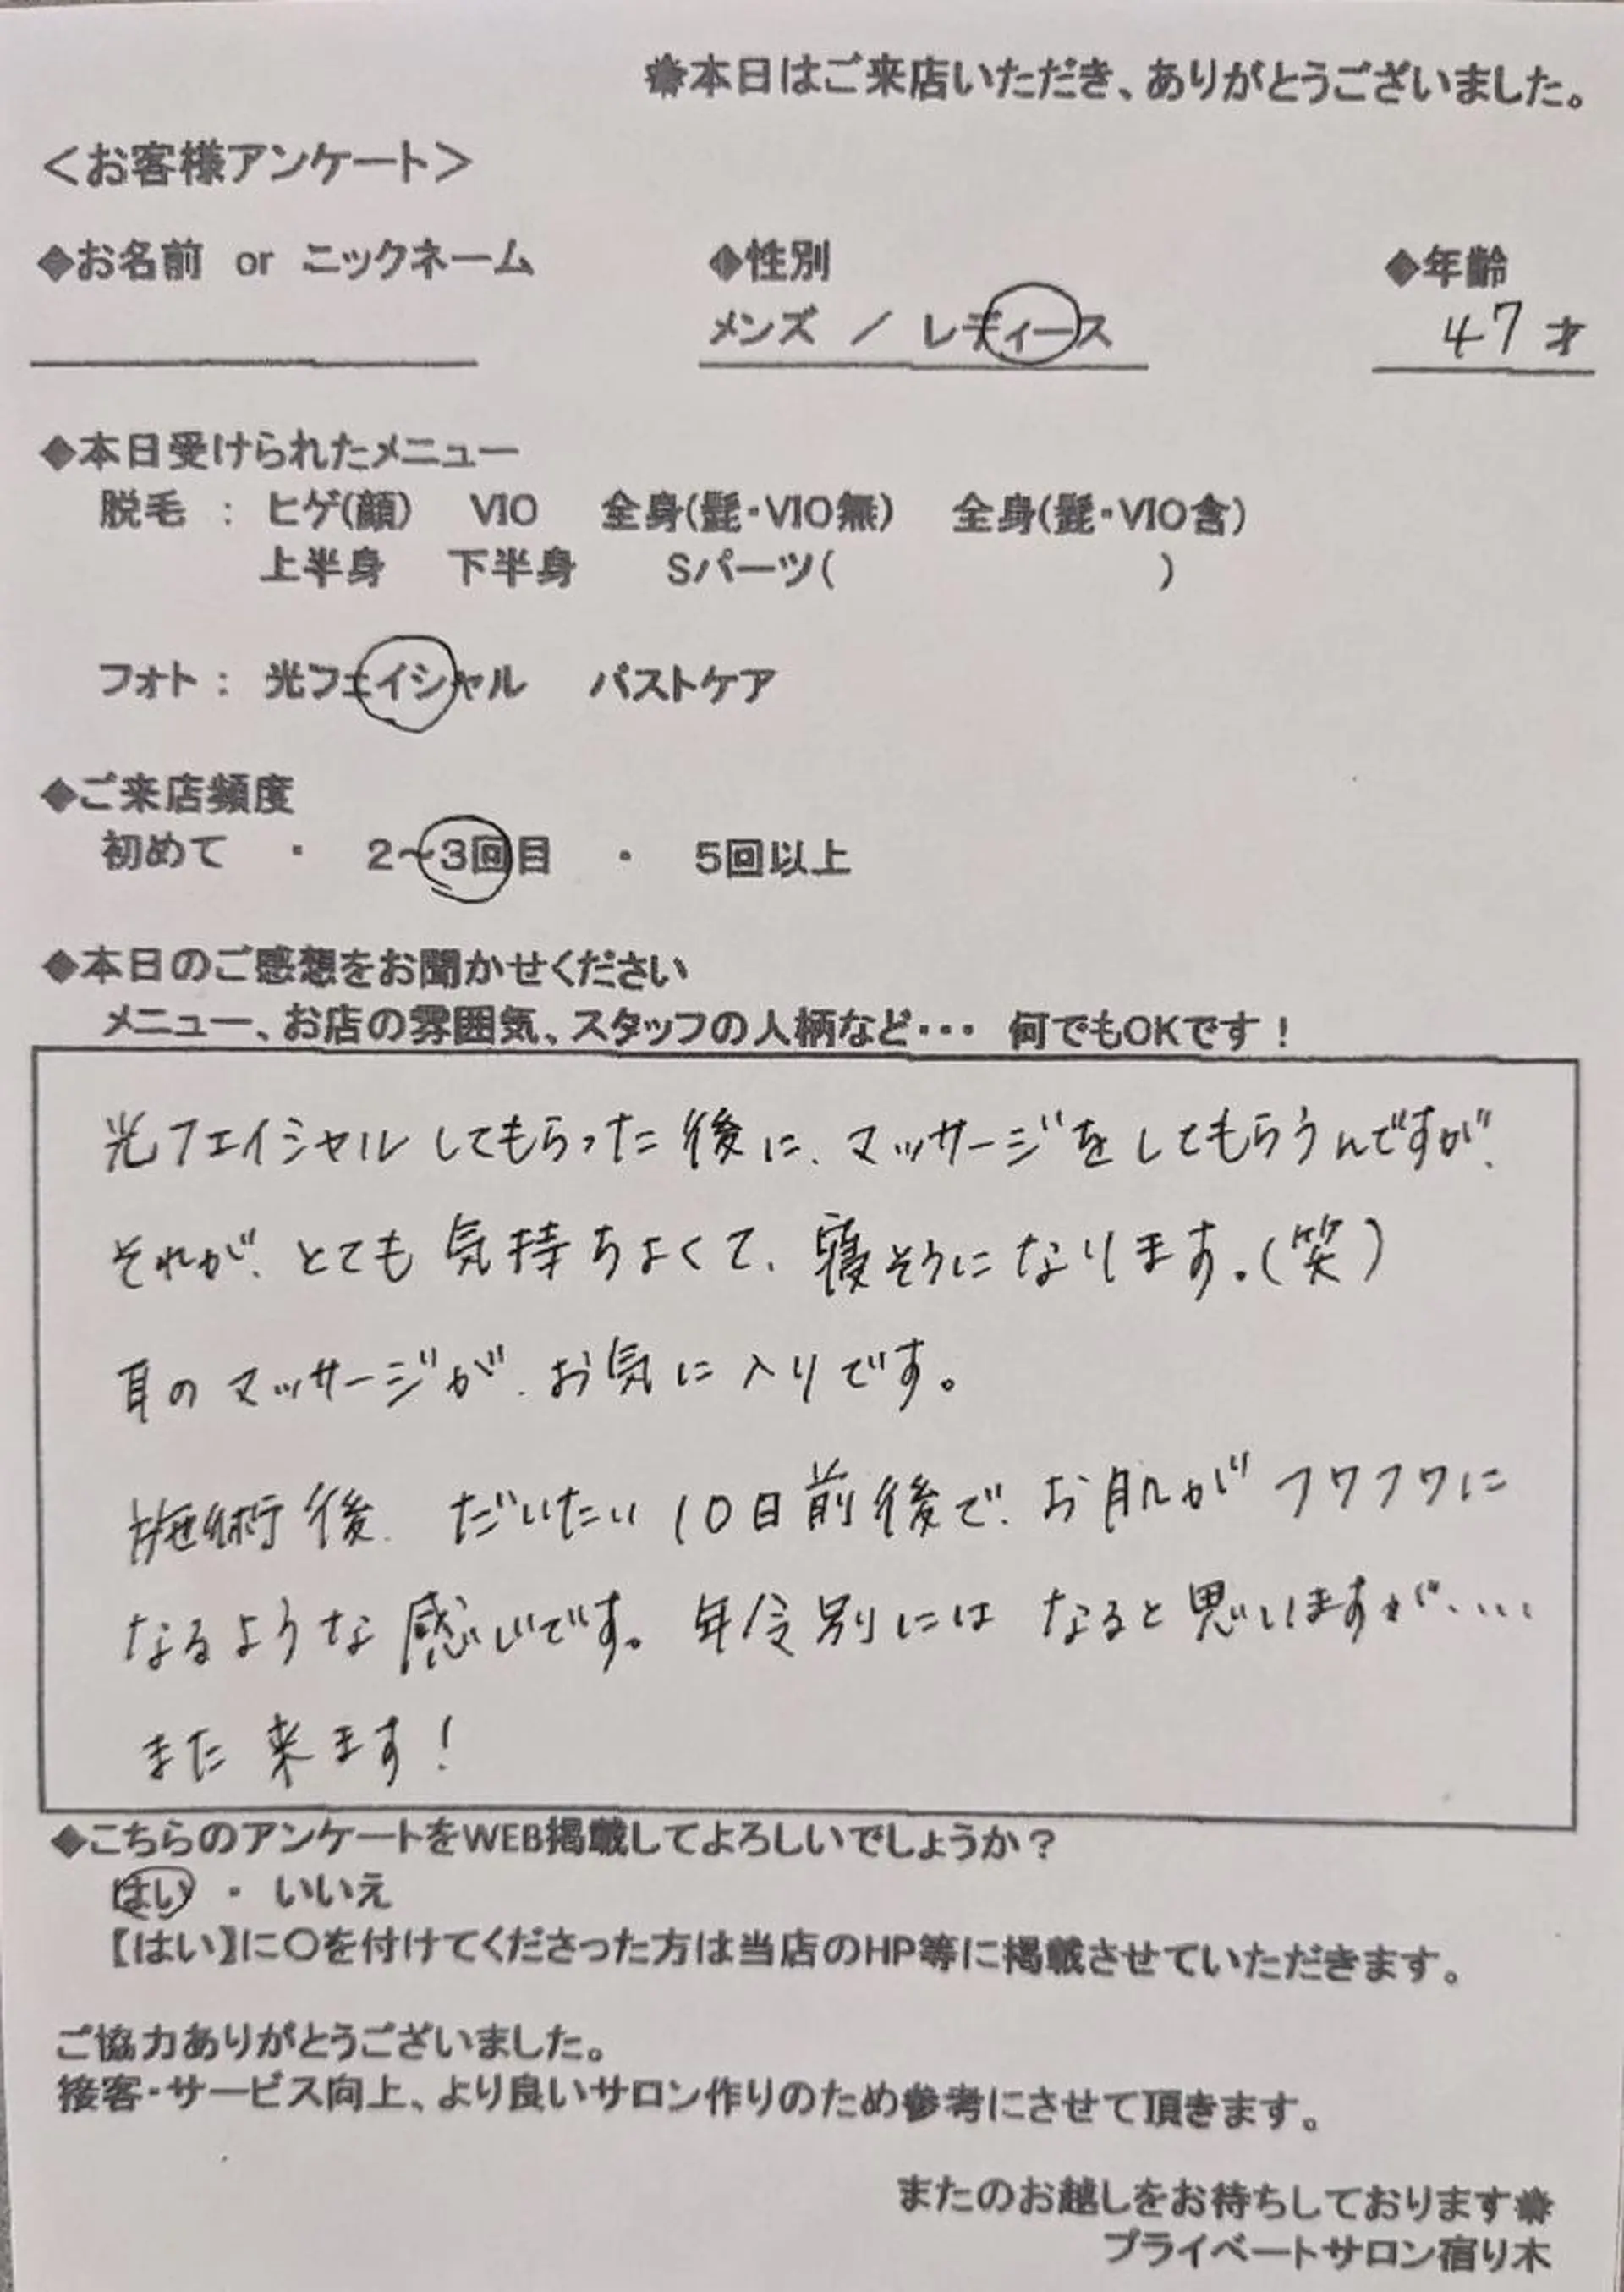 ✽本日はご来店いただき、ありがとうございました。
＜お客様アンケート＞
◆お名前 or ニックネーム ◆性別 ◆年齢
メンズ ／ レディース 47才
◆本日受けられたメニュー
脱毛 ： ヒゲ(顔) VIO 全身(髭・VIO無) 全身(髭・VIO含)
上半身 下半身 Sパーツ( )
フォト： 光フェイシャル バストケア
◆ご来店頻度
初めて ・ 2～3回目 ・ 5回以上
◆本日のご感想をお聞かせください
メニュー、お店の雰囲気、スタッフの人柄など・・・ 何でもOKです！
光フェイシャルしてもらった後に、マッサージをしてもらうんですが、
それが、とても気持ちよくて、寝そうになります。(笑)
耳のマッサージが、お気に入りです。
施術後、だいたい10日前後で、お肌がフワフワに
なるような感じです。年令別にはなると思いますが....
また来ます！
◆こちらのアンケートをWEB掲載してよろしいでしょうか？
はい ・ いいえ
【はい】に〇を付けてくださった方は当店のHP等に掲載させていただきます。
ご協力ありがとうございました。
接客・サービス向上、より良いサロン作りのため参考にさせて頂きます。
またのお越しをお待ちしております✽
プライベートサロン宿り木